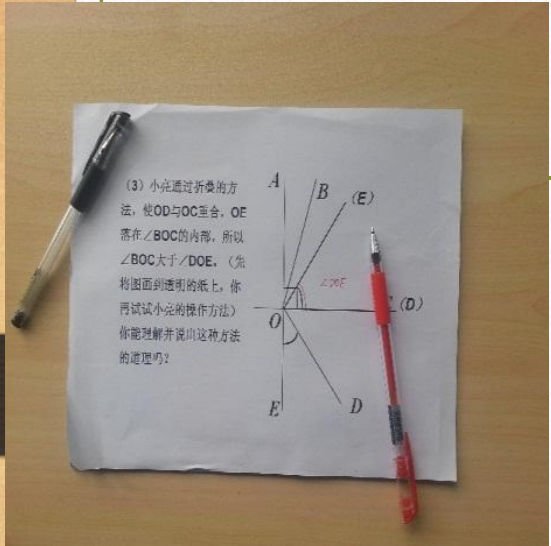 (3) 小亮通过折叠的方
法，使OD与OC重合，OE
落在∠BOC的内部，所以
∠BOC大于∠DOE。（先
将图画到透明的纸上，你
再试试小亮的操作方法）
你能理解并说出这种方法
的道理吗？
A
B
(E)
∠DOE
(D)
O
E
D